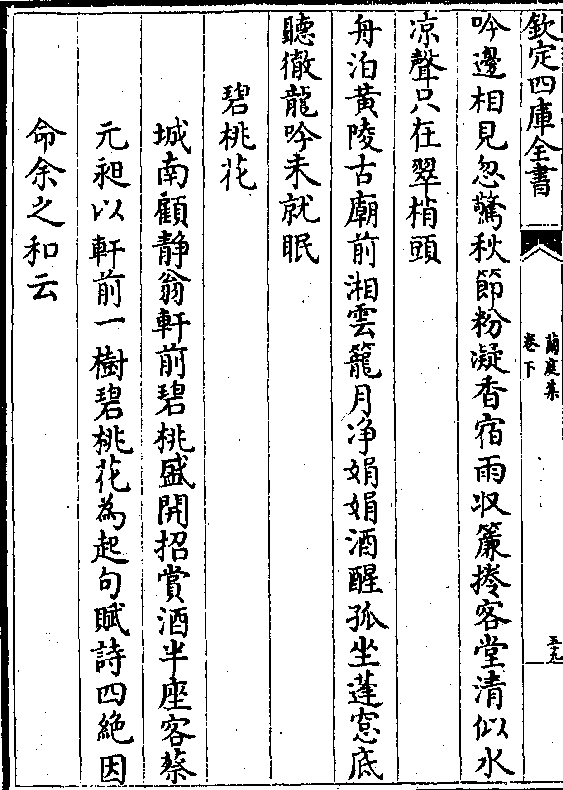 欽定四庫全書
蘭庭集
卷下
五九
吟邊相見忽驚秋節粉凝香宿雨収簾捲客堂清似水
凉聲只在翠梢頭
舟泊黃陵古廟前湘雲籠月净娟娟酒醒孤坐蓬窓底
聽徹龍吟未就眠
碧桃花
城南顧静翁軒前碧桃盛開招賞酒半座客蔡
元昶以軒前一樹碧桃花為起句賦詩四絶因
命余之和云